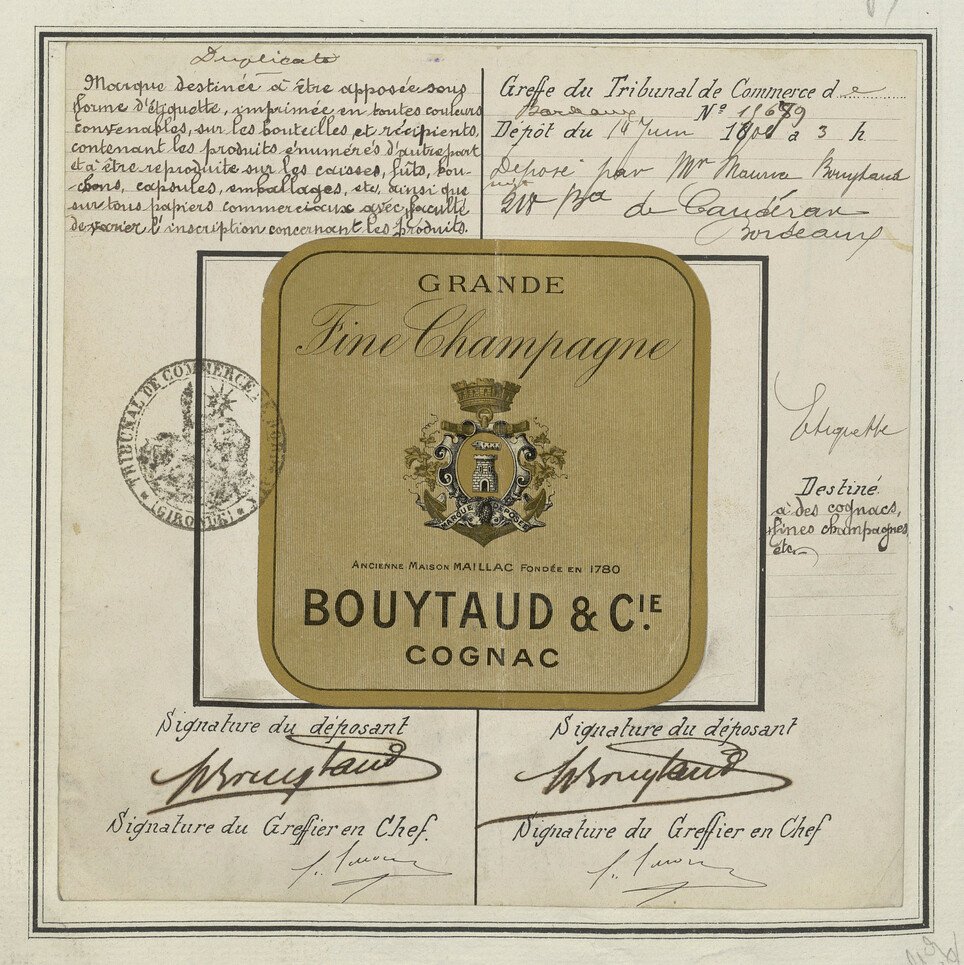 Duplicata
Marque destinée à être apposée sous
forme d'étiquette, imprimée en toutes couleurs
convenables, sur les bouteilles et récipients,
contenant les produits énumérés d'autre part
et à être reproduite sur les caisses, fûts, bou-
chons, capsules, emballages, etc, ainsi que
sur tous papiers commerciaux avec faculté
de varier l'inscription concernant les produits.
Greffe du Tribunal de Commerce d e
Bordeaux Nº
Dépôt du 14 Juin à 3 h.
Déposé par Mr Maurice Bouytaud
de Caudéran
Bordeaux
GRANDE
Fine Champagne
MARQUE DÉPOSÉE
ANCIENNE MAISON MAILLAC FONDÉE EN 1780
BOUYTAUD & CIE.
COGNAC
TRIBUNAL DE COMMERCE DE BORDEAUX
* (GIRONDE) *
Etiquette
Destiné
à des cognacs,
fines champagnes
etc
Signature du déposant
MBouytaud
Signature du Greffier en Chef.
Signature du déposant
MBouytaud
Signature du Greffier en Chef